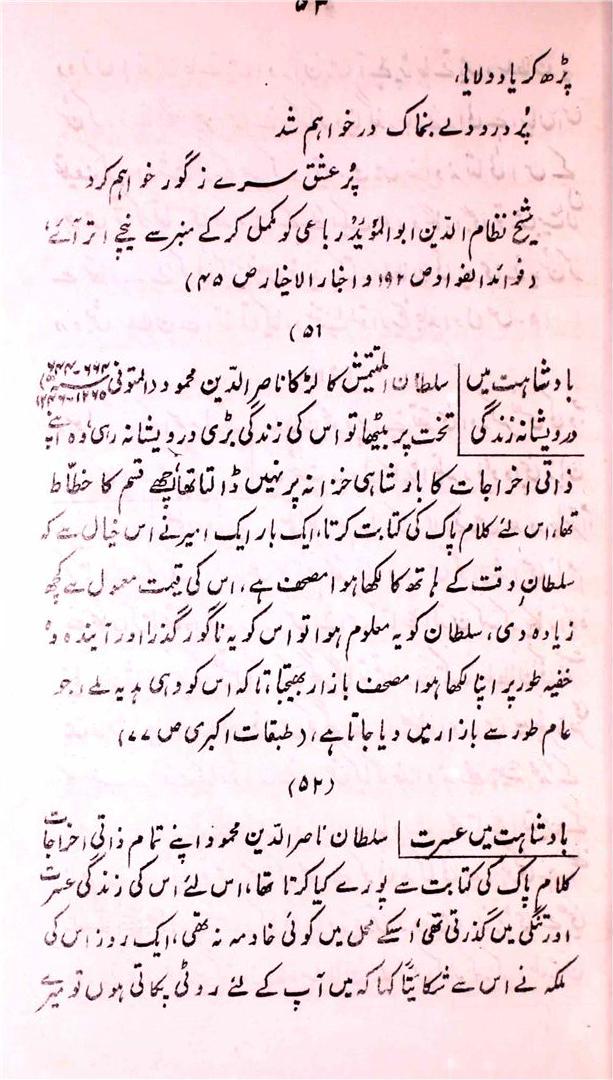 ۵۳
پڑھ کر یاد دلایا،
پُر درد دلے بخاک در خواہم شد
پُر عشق سرے ز گور خواہم کرد
شیخ نظام الدین ابو المؤیدؒ رباعی کو مکمل کر کے منبر سے نیچے اتر آئے،
(فوائد الفواد ص ۱۹۲ و اخبار الاخیار ص ۴۵)
(۵۱)
بادشاہت میں درویشانہ زندگی | سلطان التتمش کا لڑکا ناصر الدین محمود (المتوفی ۶۶۴-۶۴۴ھ ۱۲۶۵-۱۲۴۶ء)
تخت پر بیٹھا تو اس کی زندگی بڑی درویشانہ رہی، وہ اپنے
ذاتی اخراجات کا بار شاہی خزانہ پر نہیں ڈالتا تھا، اچھے قسم کا خطّاط
تھا، اس لئے کلام پاک کی کتابت کرتا، ایک بار ایک امیر نے اس خیال سے کہ
سلطانِ وقت کے ہاتھ کا لکھا ہوا مصحف ہے، اس کی قیمت معمول سے کچھ
زیادہ دی، سلطان کو یہ معلوم ہوا تو اس کو یہ ناگوار گذرا اور آیندہ وہ
خفیہ طور پر اپنا لکھا ہوا مصحف بازار بھیجتا، تاکہ اس کو وہی ہدیہ ملے، جو
عام طور سے بازار میں دیا جاتا ہے، (طبقات اکبری ص ۷۷)
(۵۲)
بادشاہت میں عسرت | سلطان ناصر الدین محمود اپنے تمام ذاتی اخراجات
کلام پاک کی کتابت سے پورے کیا کرتا تھا، اس لئے اس کی زندگی عسرت
اور تنگی میں گذرتی تھی، اسکے محل میں کوئی خادمہ نہ تھی، ایک روز اس کی
ملکہ نے اس سے شکایتاً کہا کہ میں آپ کے لئے روٹی پکاتی ہوں تو میرے